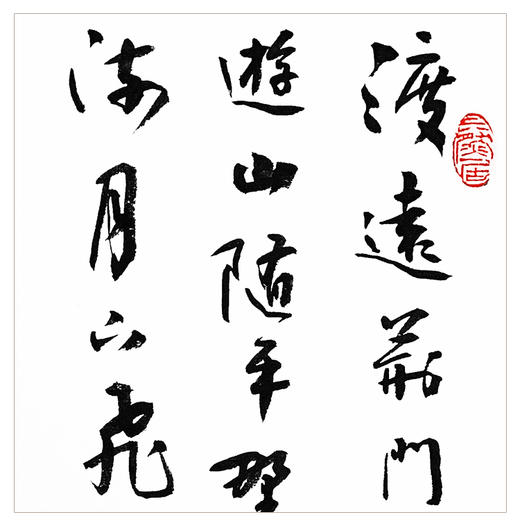 渡遠荊門
遊山随平野
流月下飛